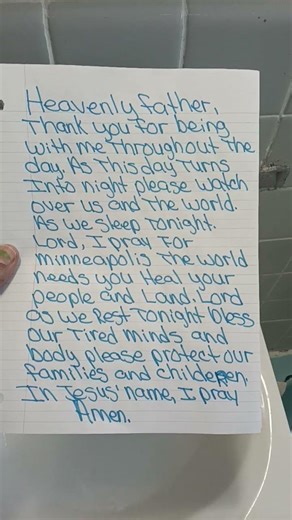 Heavenly father,
Thank you for being
with me Throughout the
day. As This day Turns
Into night please watch
over us and The world.
As we sleep Tonight.
Lord, I pray For
minneapolis The world
needs you Heal your
people and Land. Lord
as we Rest Tonight bless
our Tired minds and
body please protect our
families and childeren.
In Jesus' name, I pray
Amen.